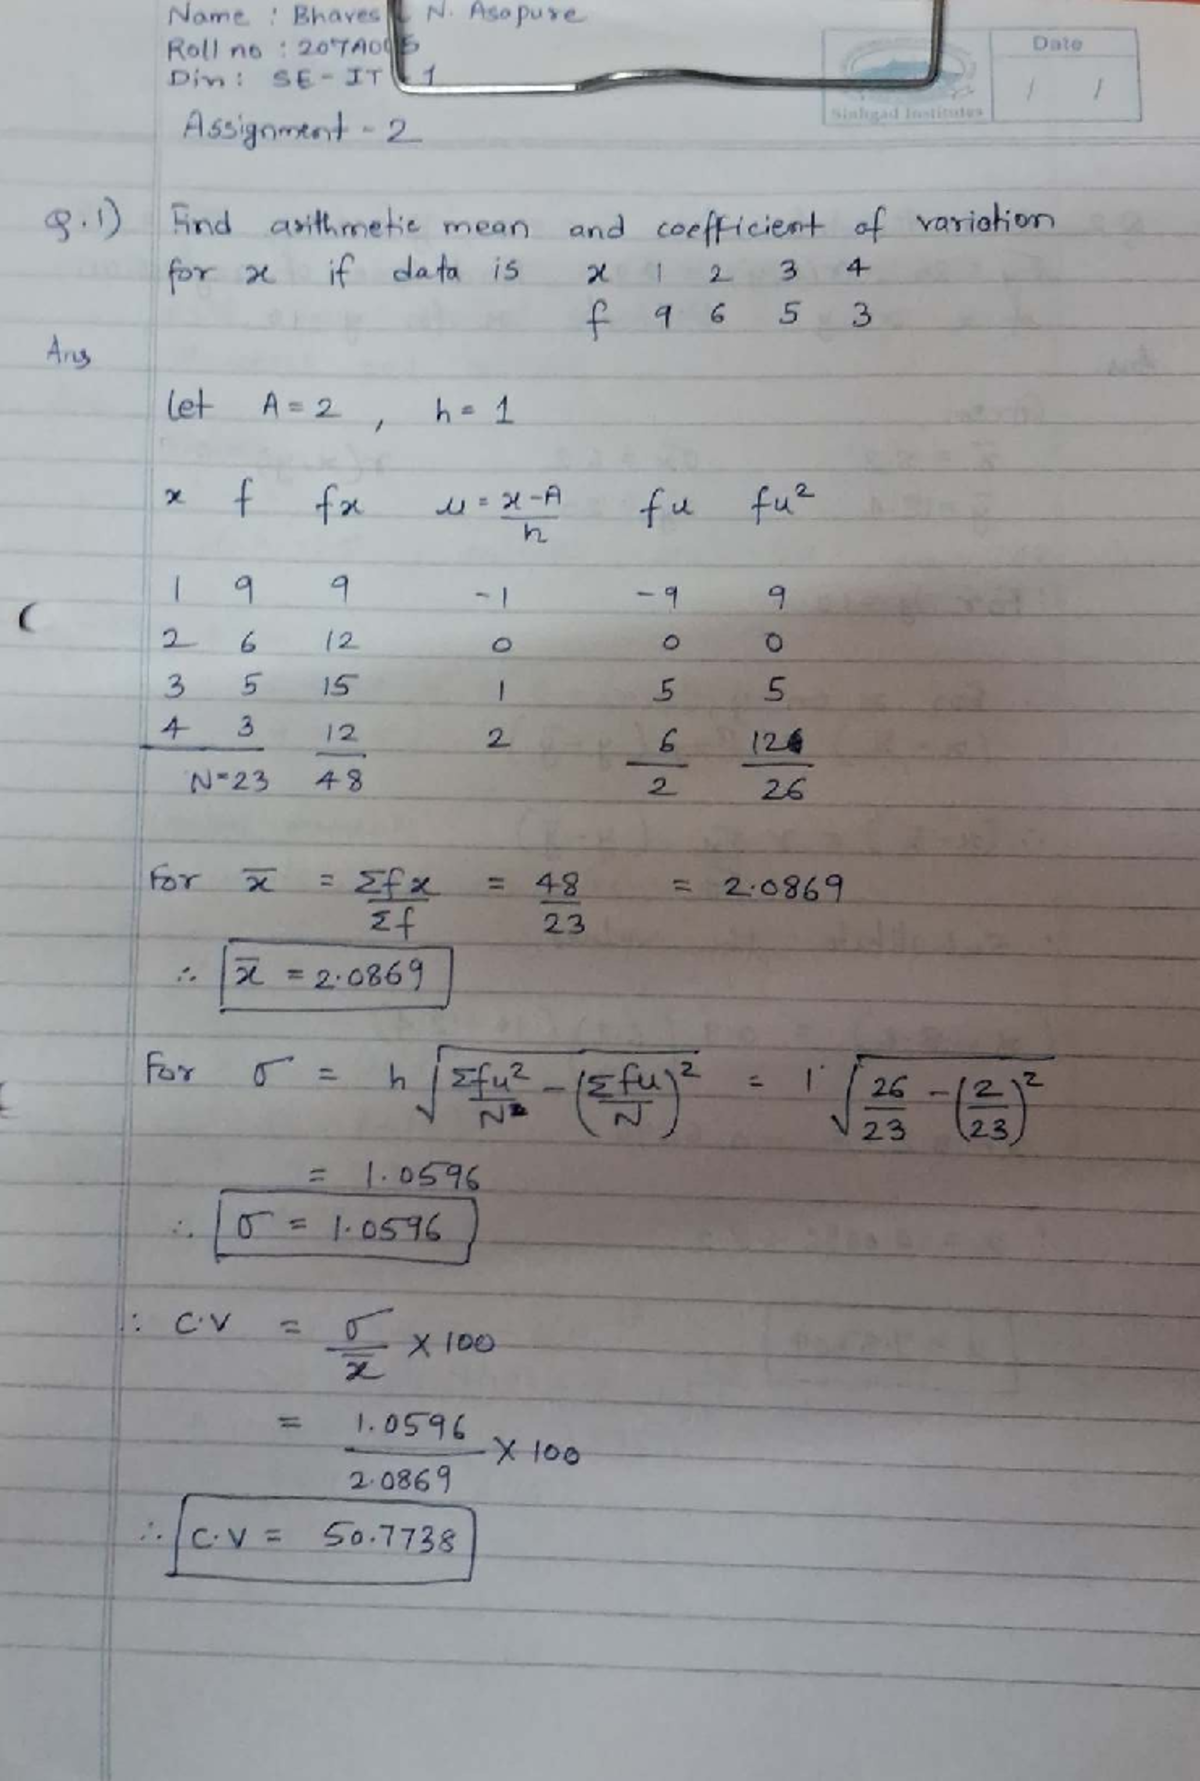 Name : Bhaves N. Asapure
Roll no : 207A005
Div : SE-IT-1
Sinhgad Institutes
Date
/ /
Assignment - 2
Q.1) Find arithmetic mean and coefficient of variation
for x if data is x 1 2 3 4
f 9 6 5 3
Ans
Let A = 2 , h = 1
x f fx u = (x-A)/h fu fu²
1 9 9 -1 -9 9
2 6 12 0 0 0
3 5 15 1 5 5
4 3 12 2 6 12
N=23 48 2 26
For x̄ = Σfx/Σf = 48/23 = 2.0869
∴ x̄ = 2.0869
For σ = h √(Σfu²/N - (Σfu/N)²) = 1 √(26/23 - (2/23)²)
= 1.0596
∴ σ = 1.0596
∴ C.V = σ/x̄ × 100
= 1.0596/2.0869 × 100
∴ C.V = 50.7738